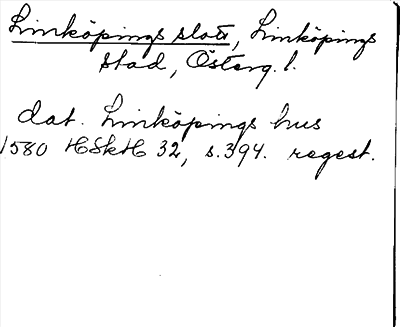 Linköpings slott, Linköpings
stad, Österg. l.
dat. Linköpings hus
1580 HSkH 32, s. 394. regest.